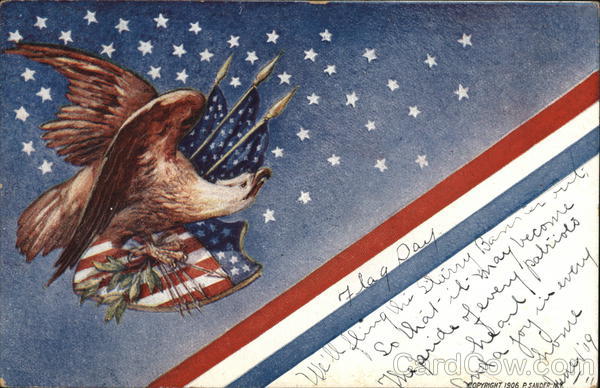 Flag Day.
We'll fling the Starry Banner out,
So that it may become
The pride of every patriots
heart
And a joy in every
home
19
COPYRIGHT 1906 P. SANDER N.Y.
CardCow.com